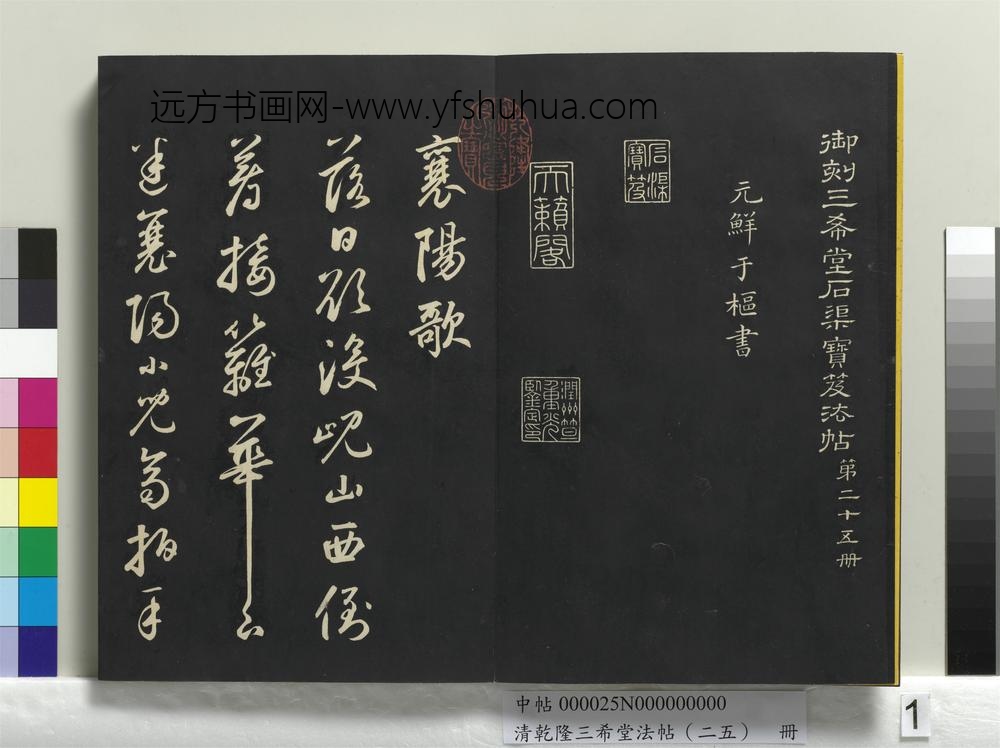 远方书画网-www.yfshuhua.com
御刻三希堂石渠寶笈法帖第二十五册
元鮮于樞書
石渠寶笈
天籟閣
襄陽歌
落日欲没峴山西倒
着接䍦華下
迷襄陽小兒齊拍手
中帖 000025N000000000
清乾隆三希堂法帖（二五） 冊
1